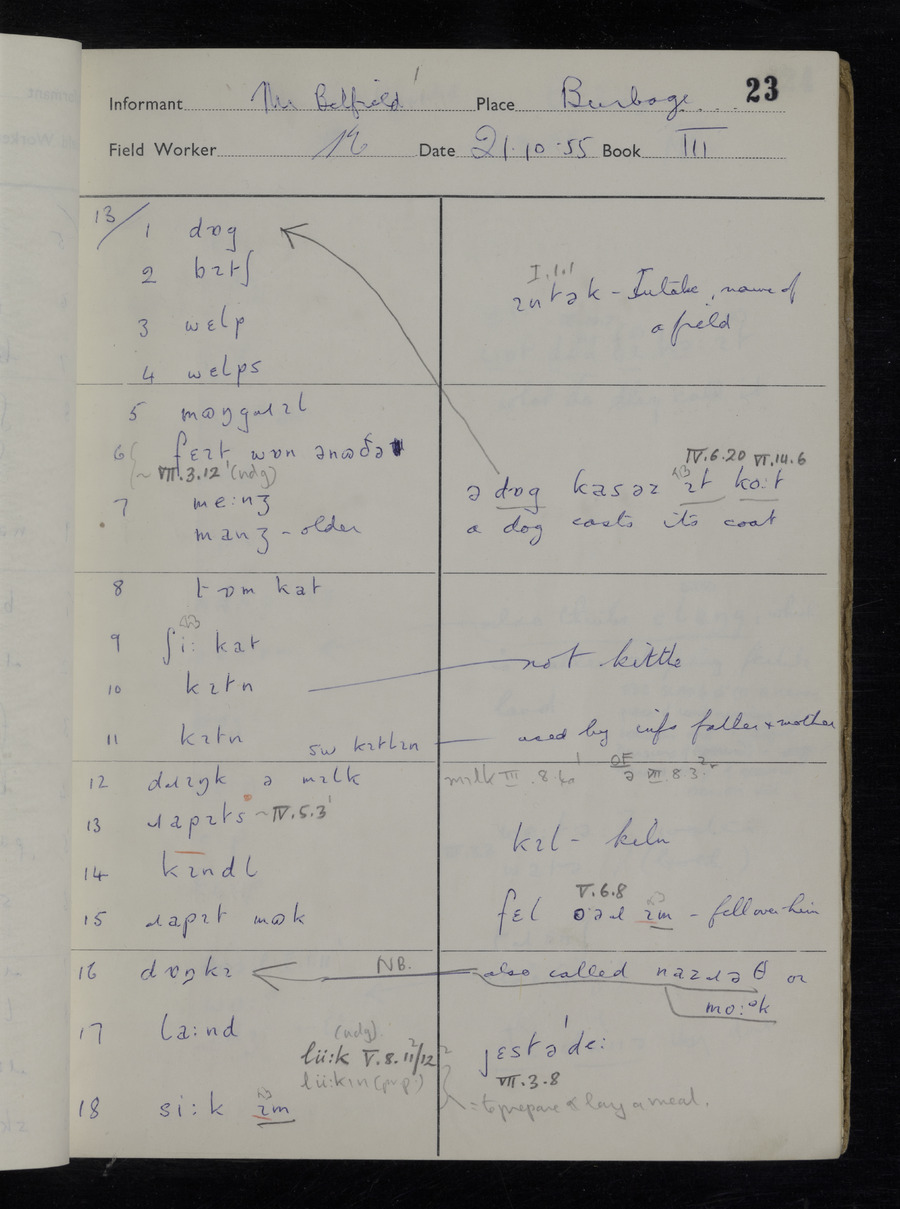 23
Informant Mr Belfield Place Burbage
Field Worker Date 21.10.55 Book III
13/
1 dɒg
2 bɪtʃ
3 wɛlp
4 wɛlps
I.1.1
ɪntək - Intake, name of
a field
5 mɷŋgɹɪl
6 fɛɪt wɒn ənɷðə
~ VII.3.12 (ndg)
7 meːnʒ
manʒ - older
IV.6.20 VI.14.6
ə dɒg kasəz ɪt koːt
a dog casts its coat
8 tɒm kat
9 ʃiː kat
10 kɪtn
not kittle
11 kɪtn
sw kɪtlɪn
used by inf's father + mother
12 dɹɪŋk ə mɪlk
milk III.8.
OE
ə VII.8.3
13 ɹapɪts ~ IV.5.3
14 kɪndl
kɪl - kiln
15 ɹapɪt mɷk
V.6.8
fɛl ɔəɹ ɪm - fell over him
16 dɒŋkɪ
NB.
also called naɪɹəθ or
moːək
17 laːnd
(ndg)
lüːk V.8.11/12
lüːkɪn (prp.)
jestədeː
VII.3.8
= to prepare & lay a meal.
18 siːk ɪm